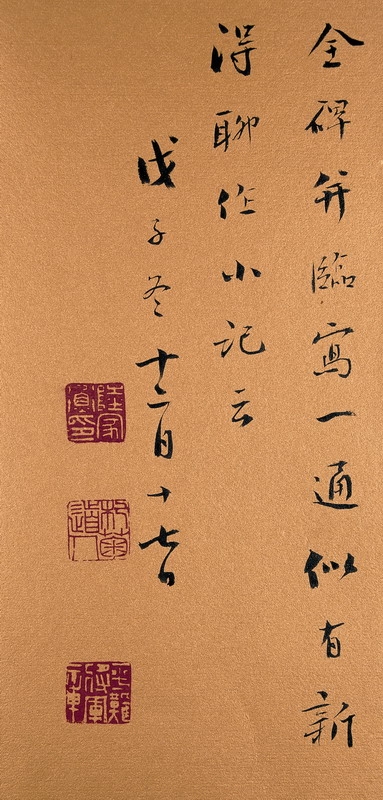 全碑并臨寫一通似有新
得聊作小記云
戊子冬十二月十七日